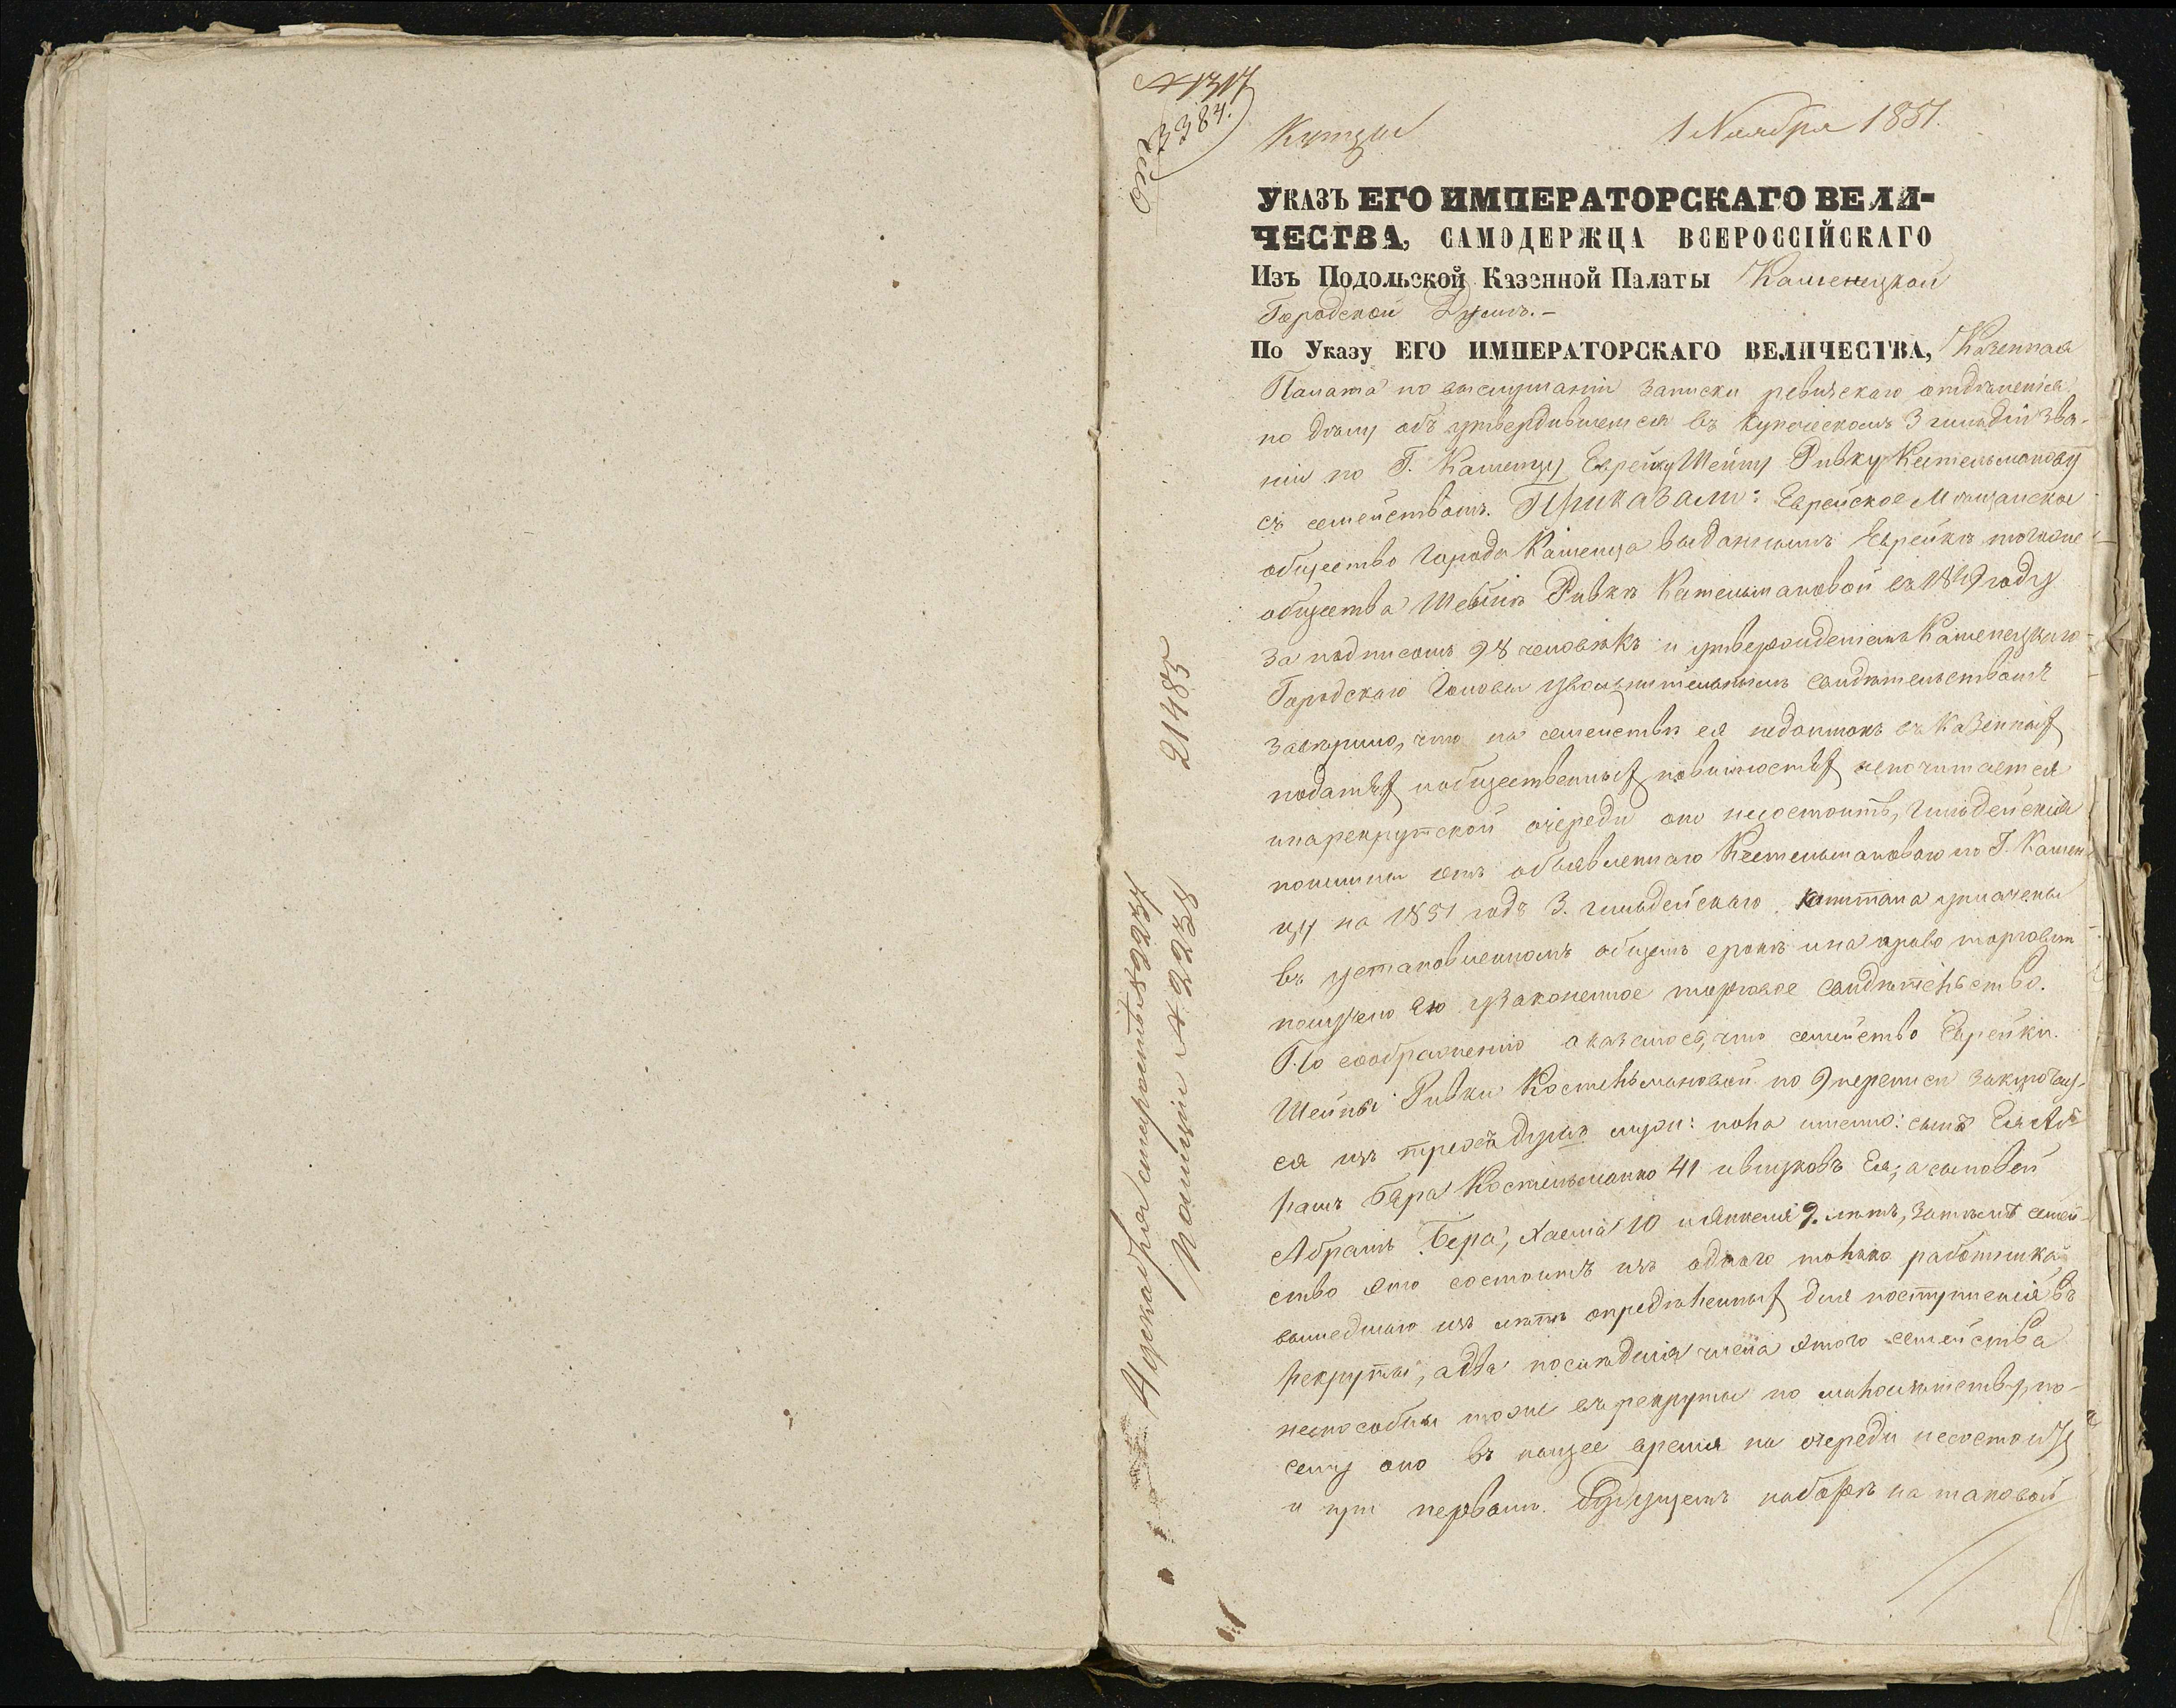 № 1317
3384.
отв
Купцы
1 Ноября 1851.
УКАЗЪ ЕГО ИМПЕРАТОРСКАГО ВЕЛИ-
ЧЕСТВА, САМОДЕРЖЦА ВСЕРОССІЙСКАГО
Изъ Подольской Казенной Палаты Каменецкой
Городской Думѣ.-
По Указу ЕГО ИМПЕРАТОРСКАГО ВЕЛИЧЕСТВА, Казенная
Палата по выслушаніи записки ревизскаго отдѣленія
по дѣлу объ утвердившемся въ купеческомъ 3 гильдіи зва-
ніи по Г. Каменцу Еврейку Шейну Ривку Кетельманову
съ семействомъ. Приказали: Еврейское Мѣщанское
общество города Каменца выданнымъ Еврейкѣ тогоже
общества Шейнѣ Ривкѣ Кетельмановой въ 1849 году
за подписомъ 98 человѣкъ и утвержденіемъ Каменецкаго
Городскаго Головы увольнительнымъ свидѣтельствомъ
завѣрило, что на семействѣ ея недоимокъ въ казенныхъ
податяхъ и общественныхъ повинностяхъ непочитается
и на рекрутской очереди оно несостоитъ, гильдейскія
пошлины отъ объявленнаго Кетельмановою по Г. Камен-
цу на 1851 годъ 3. гильдейскаго капитала уплачены
въ установленномъ общемъ срокѣ и на право торговли
получено ею узаконенное торговое свидѣтельство.
По соображенію оказалось, что семейство Еврейки
Шейны Ривки Костельмановой по 9 переписи заключает-
ся изъ трехъ душъ мужс: пола именно: сына Ея Аб-
рамъ Бера Костельмана 41 и внуковъ Ея, а сыновей
Абрамъ Бера, Хаема 10 и Янкеля 9. лѣтъ, затѣмъ семей-
ство это состоитъ изъ одного только работника
вышедшаго изъ лѣтъ опредѣленныхъ для поступленія въ
рекруты, а два послѣднія члена этого семейства
неспособны тоже въ рекруты по малолѣтству, по-
сему оно въ нащее время на очереди несостоитъ
и при первомъ будущемъ наборѣ на таковой
21485
Декабря
Полиціи № 2238
1